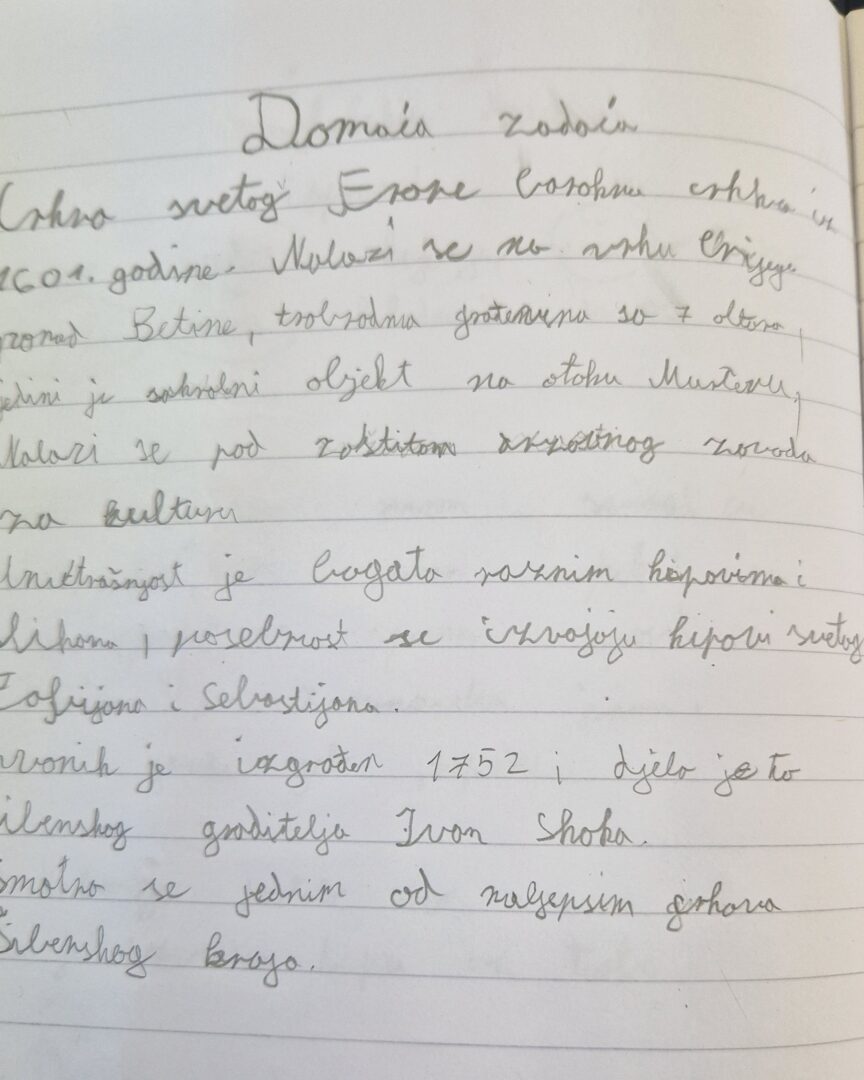 Domaća zadaća
Crkva svetog Frane barokna crkva iz
1601. godine. Nalazi se na vrhu
ponad Betine, trobrodna građevina sa 7 oltara,
jedini je sakralni objekt na otoku Murteru,
Nalazi se pod zaštitom zavoda
za kulturu
je bogata raznim kipovima i
slikama, posebnost se izvajaju kipovi svetog
i Sebastijana.
zvonik je izgrađen 1752 i djelo je to
šibenskog graditelja Ivan Skoka.
Smatra se jednim od najljepsim crkava
Šibenskog kraja.